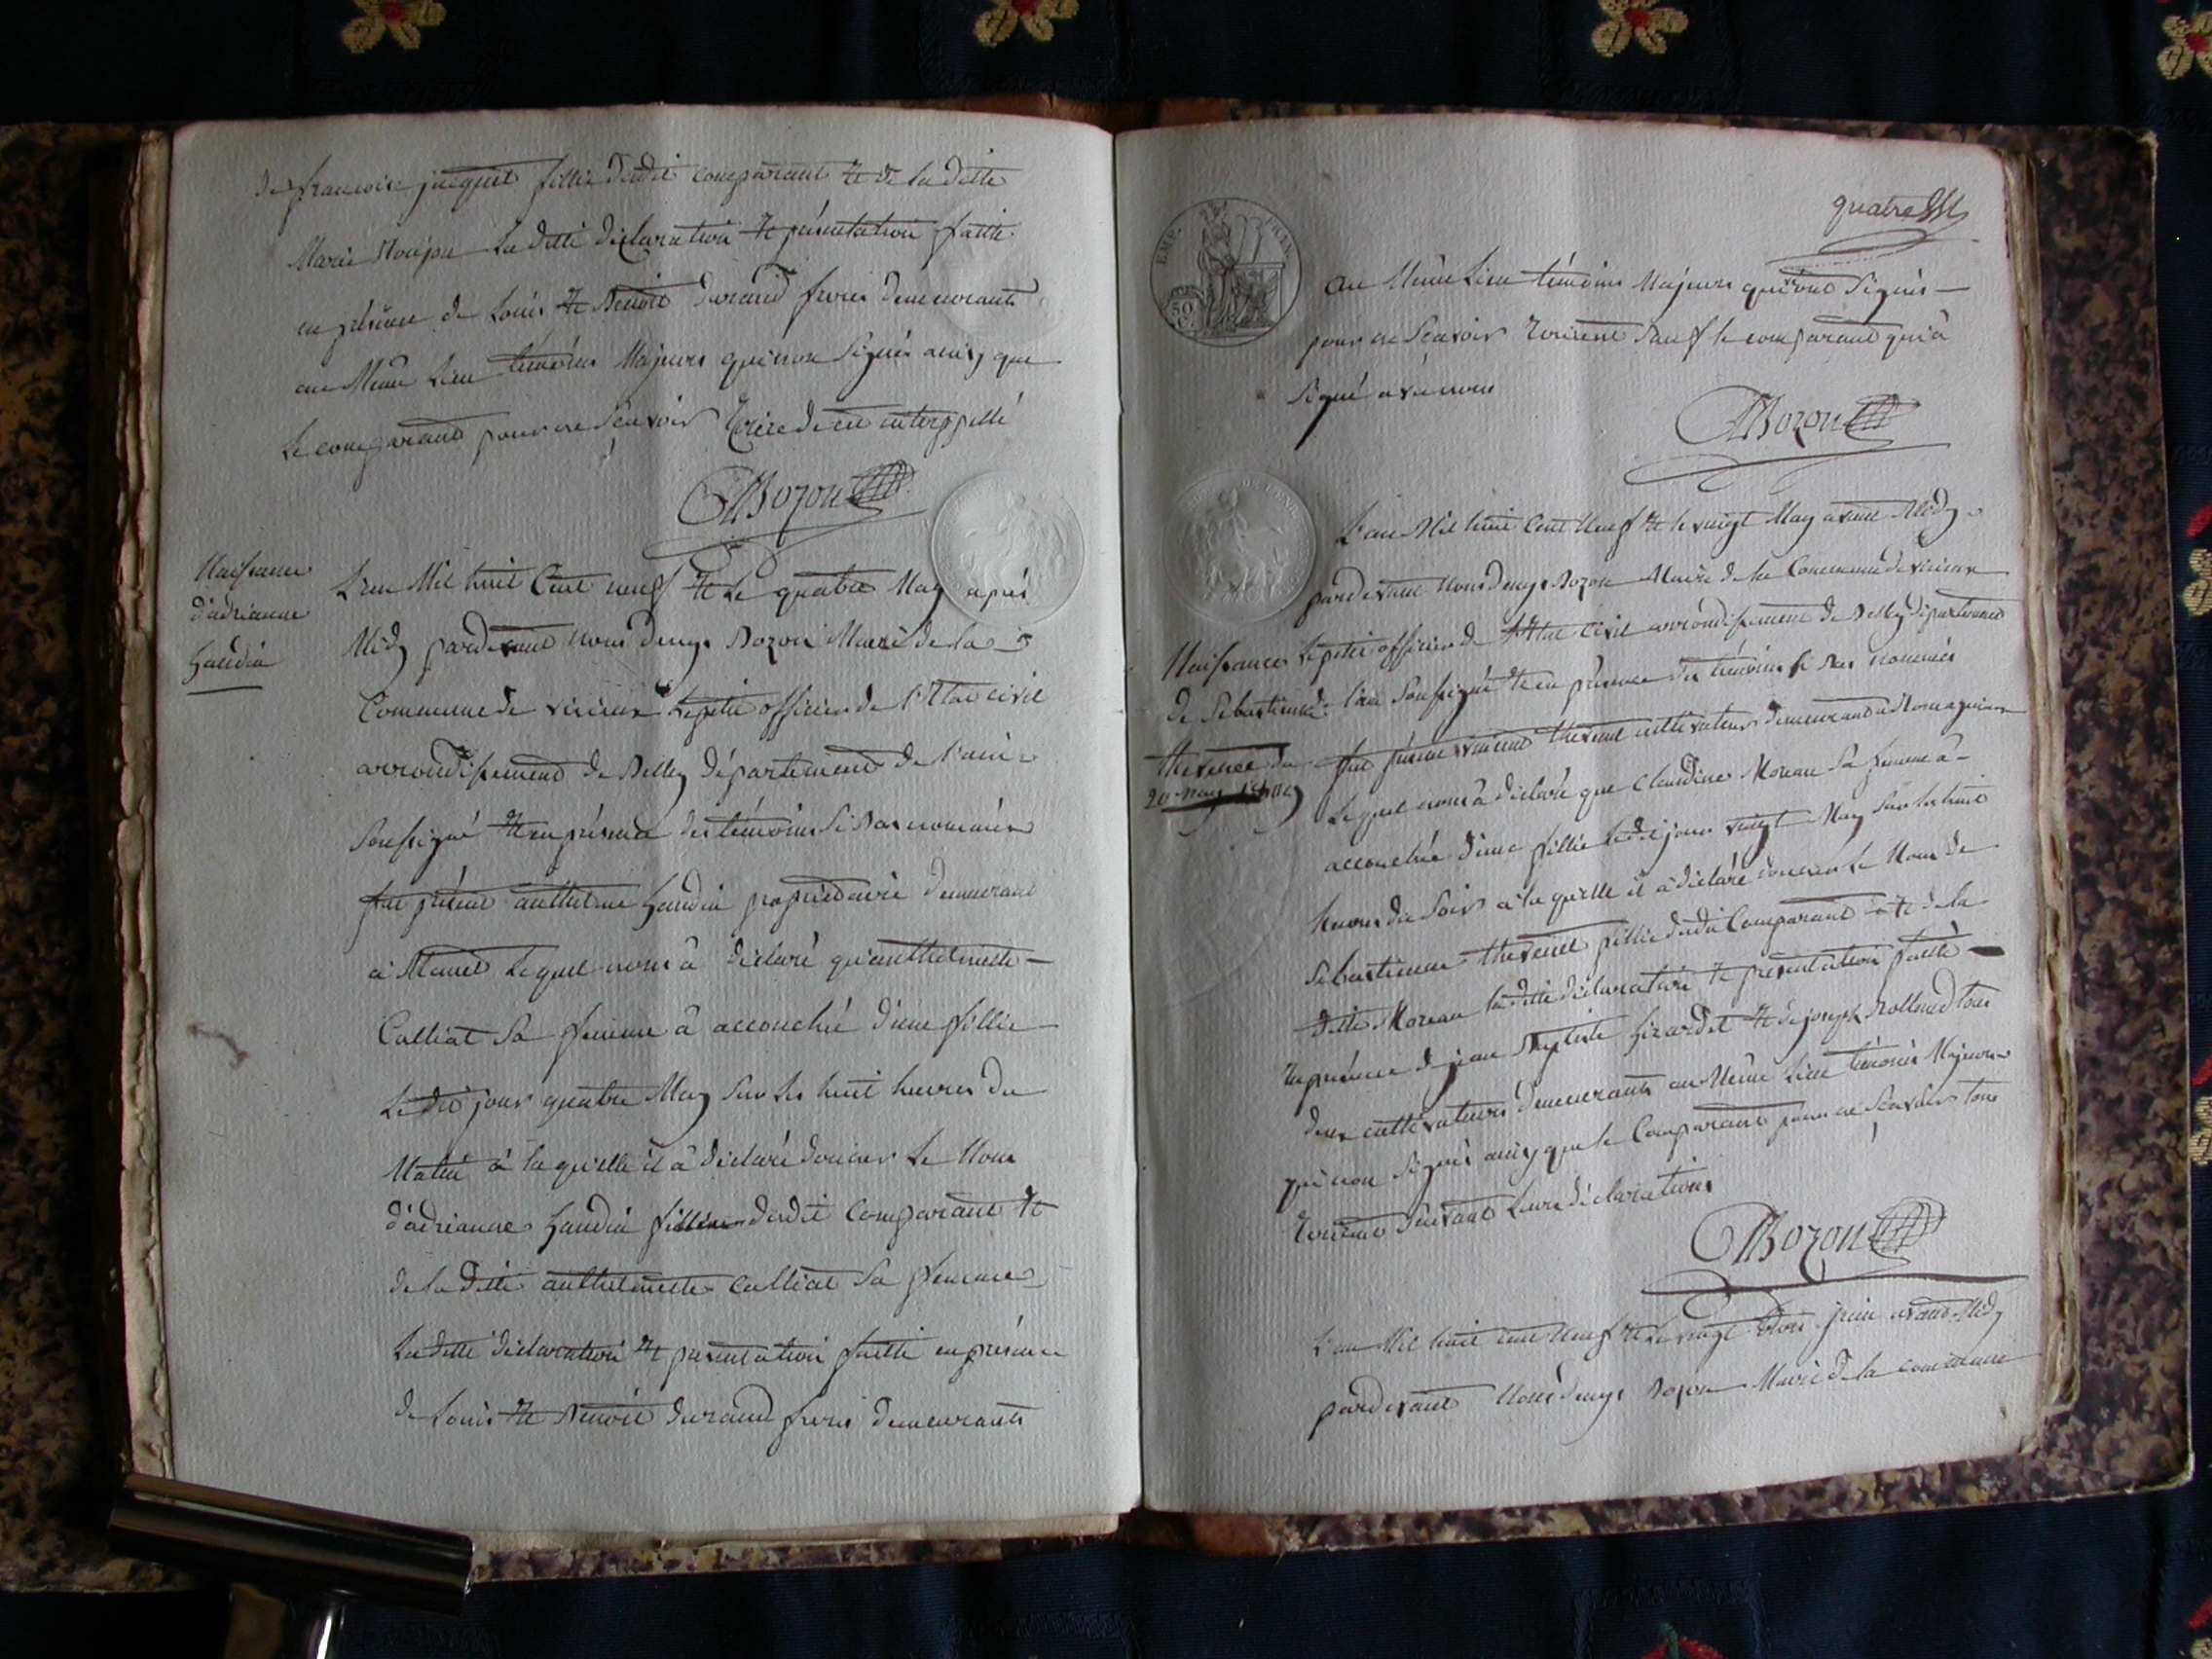 de francoise jacquet fillie dudit comparant et de la ditte
Marie la ditte déclaration et présentation faitte
en présence de Louis et Benoit durand freres demeurants
au Même Lieu témoins Majeurs qui non signés ainsy que
Le comparant pour ne scavoir Ecrire de ce interppellé
Bozon
Naissance
d'adrianne
Gaudin
L'an Mil huit Cent neuf et Le quatre May après
Midy pardevant nous denys Bozon Maire de la
Commune de virieux Lepetit officier de l'Etat civil
arrondissement de Belley département de l'ain
soussigné et en présence des témoins si bas nommés
fut présent anthelme Gaudin propriétaire demeurant
à Lequel nous à déclaré qu'anthelmette
Calliat sa femme à accouché d'une fillie
Ledit jour quatre May sur les huit heures du
Matin à laquelle il à déclaré donner Le Nom
d'adrianne Gaudin fillie dudit Comparant et
de la ditte anthelmette Calliat sa femme
La ditte déclaration et présentation faitte en présence
de Louis et Benoit durand freres demeurants
quatre
EMP. FRAN.
50 C.
au Même Lieu témoins Majeurs qui non signés
pour ne scavoir Ecrire sauf le comparant qui à
signé avec nous
Bozon
L'an Mil huit Cent Neuf et le vingt May avant Midy
pardevant nous denys Bozon Maire de la Commune de virieux
Naissance
de Sebastienne
thevenet du
20 May
Lepetit officier de l'Etat civil arrondissement de Belley département
de l'ain soussigné et en présence des témoins si bas nommés
fut présent vincent thevenet cultivateur demeurant à
Lequel nous à déclaré que Claudine Moreau sa femme à
accouchée d'une fillie Ledit jour vingt May sur les huit
heures du soir à laquelle il à déclaré donner Le Nom de
Sebastienne thevenet fillie dudit Comparant et de la
ditte Moreau la ditte déclaration et présentation faitte
en présence de jean Baptiste Girardet et de joseph Rolland tous
deux cultivateurs demeurants au Même Lieu témoins Majeurs
qui non signés ainsy que le Comparant pour ne Scavoir tous
Ecrire suivant leurs déclarations
Bozon
L'an Mil huit cent Neuf et Le vingt trois juin avant Midy
pardevant Nous denys Bozon Maire de la commune